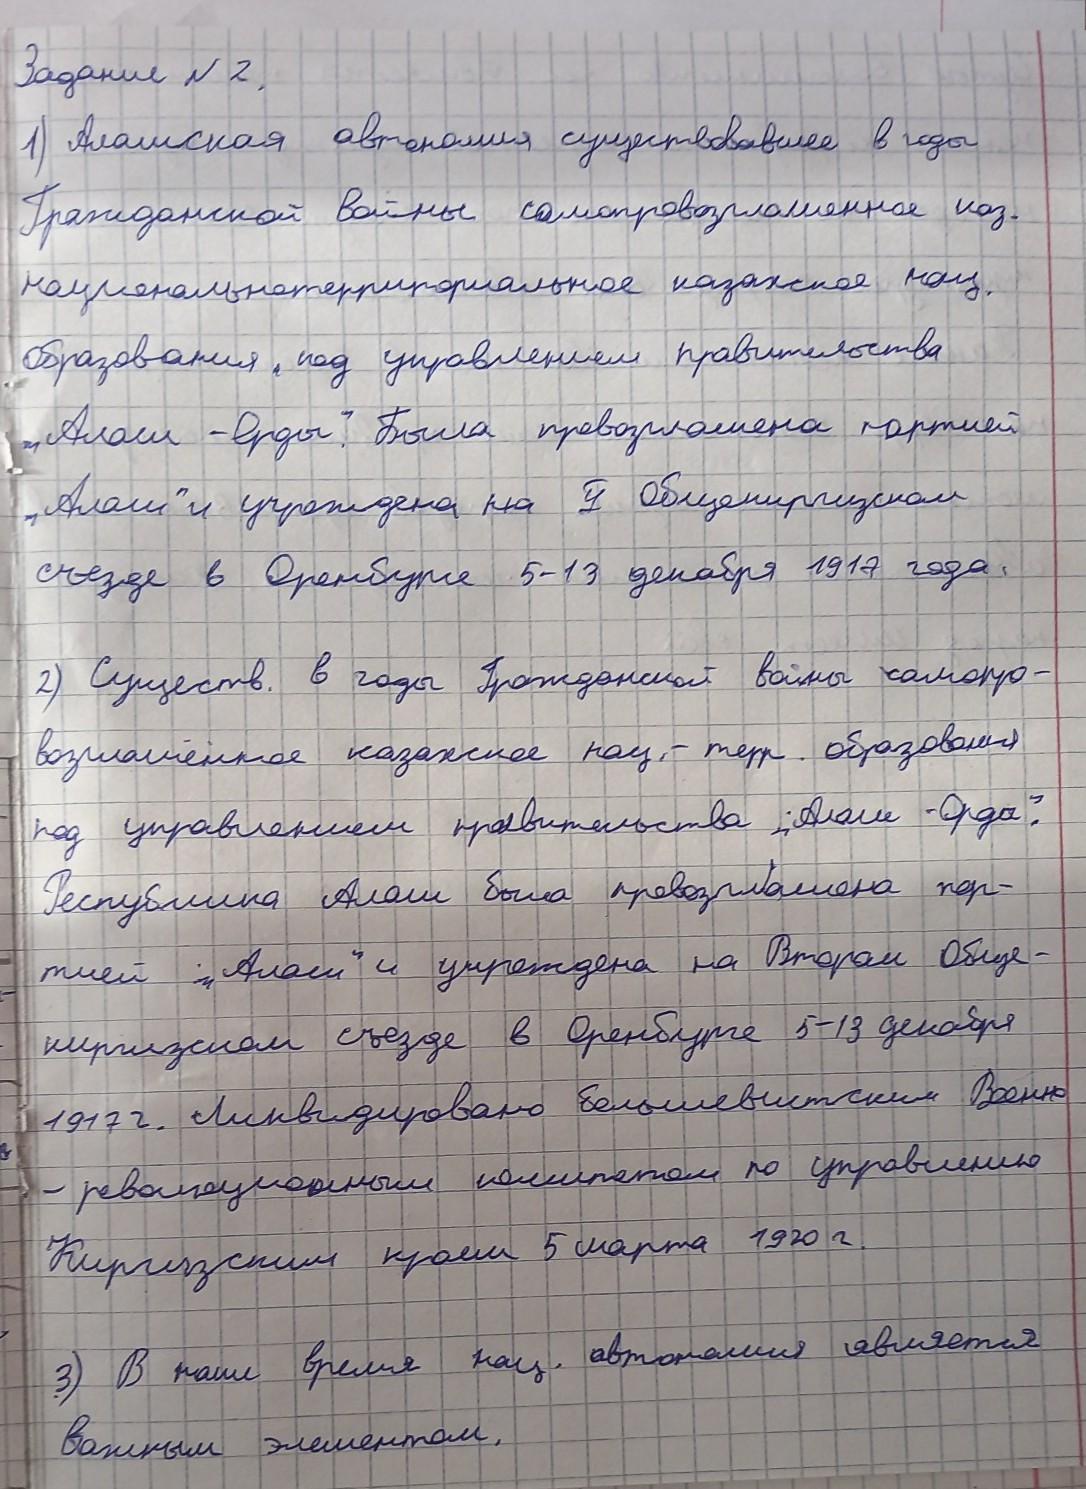 Задание № 2.
1) Алашская автономия существовавшее в годы
Гражданской войны самопровозглашенное каз.
национальнотерриториальное казахское нац.
образования, под управлением правительства
„Алаш -Орды". Была провозглашена партией
„Алаш" и учреждена на II Общекиргизском
съезде в Оренбурге 5-13 декабря 1917 года.
2) Существ. в годы Гражданской войны самопро-
возглашённое казахское нац.- терр. образования
под управлением правительства „Алаш -Орды".
Республика Алаш была провозглашена пар-
тией „Алаш" и учреждена на Втором Обще-
киргизском съезде в Оренбурге 5-13 декабря
1917 г. Ликвидировано большевистским Военно
- революционным комитетом по управлению
Киргизским краем 5 марта 1920 г.
3) В наше время нац. автономия является
важным элементом.